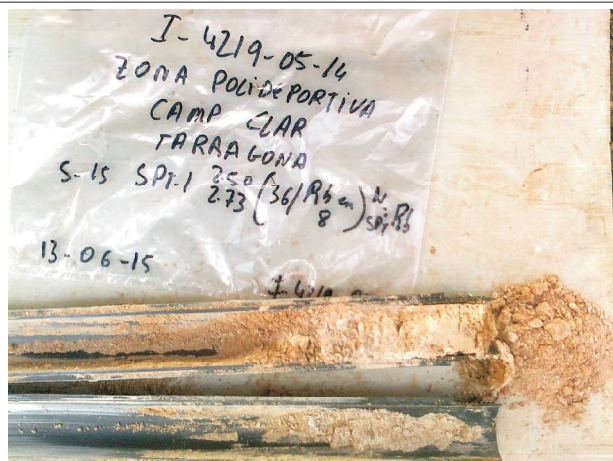 I-4219-05-14
ZONA POLIDEPORTIVA
CAMP CLAR
TARRAGONA
S-15 SPT-1 2.50
2.73 (36/Rb en 8) N SPT Rb
13-06-15
I-4219-05